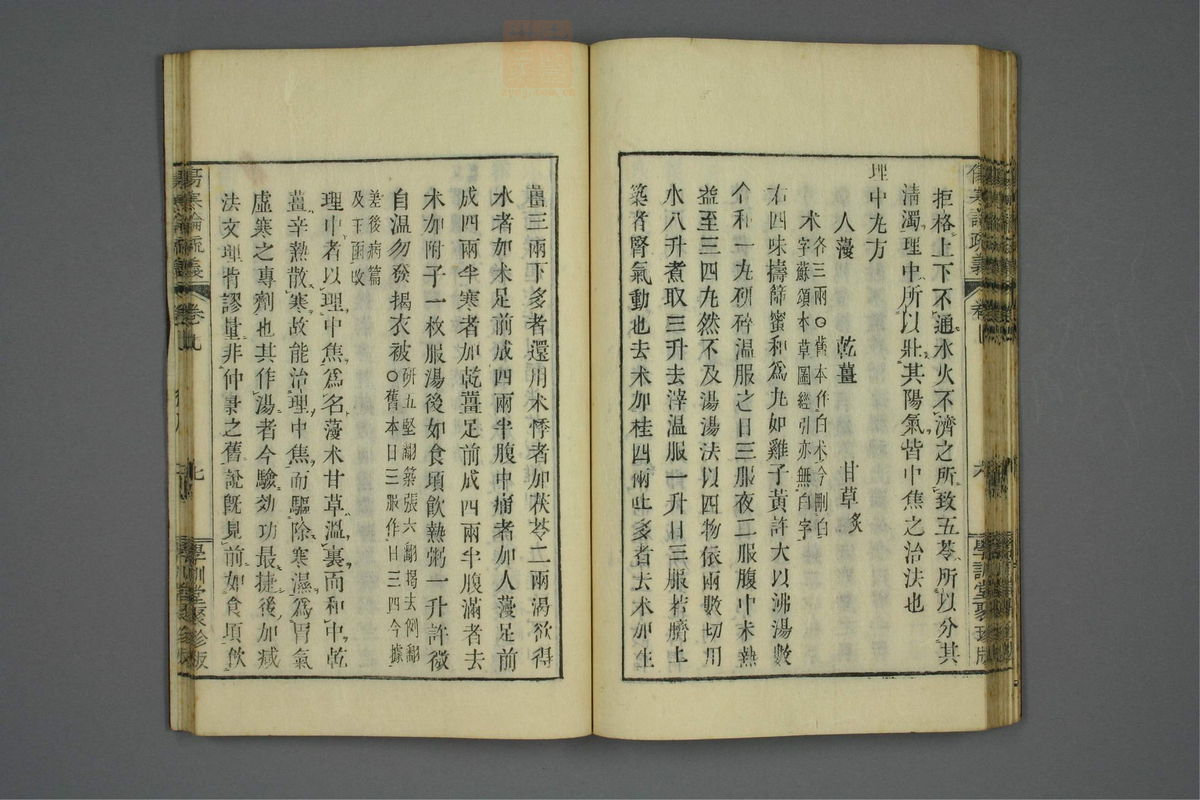 拒格上下不通水火不濟之所致五苓所以分其
淸濁理中所以壯其陽氣皆中焦之治法也
理中丸方
人薓　乾薑　甘草炙
朮各三兩〇舊本作白朮今刪白
字蘇頌本草圖經引亦無白字
右四味擣篩蜜和爲丸如雞子黃許大以沸湯數
个和一丸硏碎溫服之日三服夜二服腹中未熱
益至三四丸然不及湯湯法以四物依兩數切用
水八升煮取三升去滓溫服一升日三服若臍上
築者腎氣動也去朮加桂四兩吐多者去朮加生
薑三兩下多者還用朮悸者加茯苓二兩渴欲得
水者加朮足前成四兩半腹中痛者加人薓足前
成四兩半寒者加乾薑足前成四兩半腹滿者去
朮加附子一枚服湯後如食頃飮熱粥一升許微
自溫勿發揭衣被硏五堅翻築張六翻揭去例翻
〇舊本日三服作日三四今據
差後病篇
及玉函改
理中者以理中焦爲名薓朮甘草溫裏而和中乾
薑辛熱散寒故能治理中焦而驅除寒濕爲胃氣
虛寒之專劑也其作湯者今驗効功最捷後加減
法文理背謬量非仲景之舊說旣見前如食頃飮
傷寒論疏義
卷
學訓堂聚珍版
傷寒論疏義
卷
學訓堂聚珍版